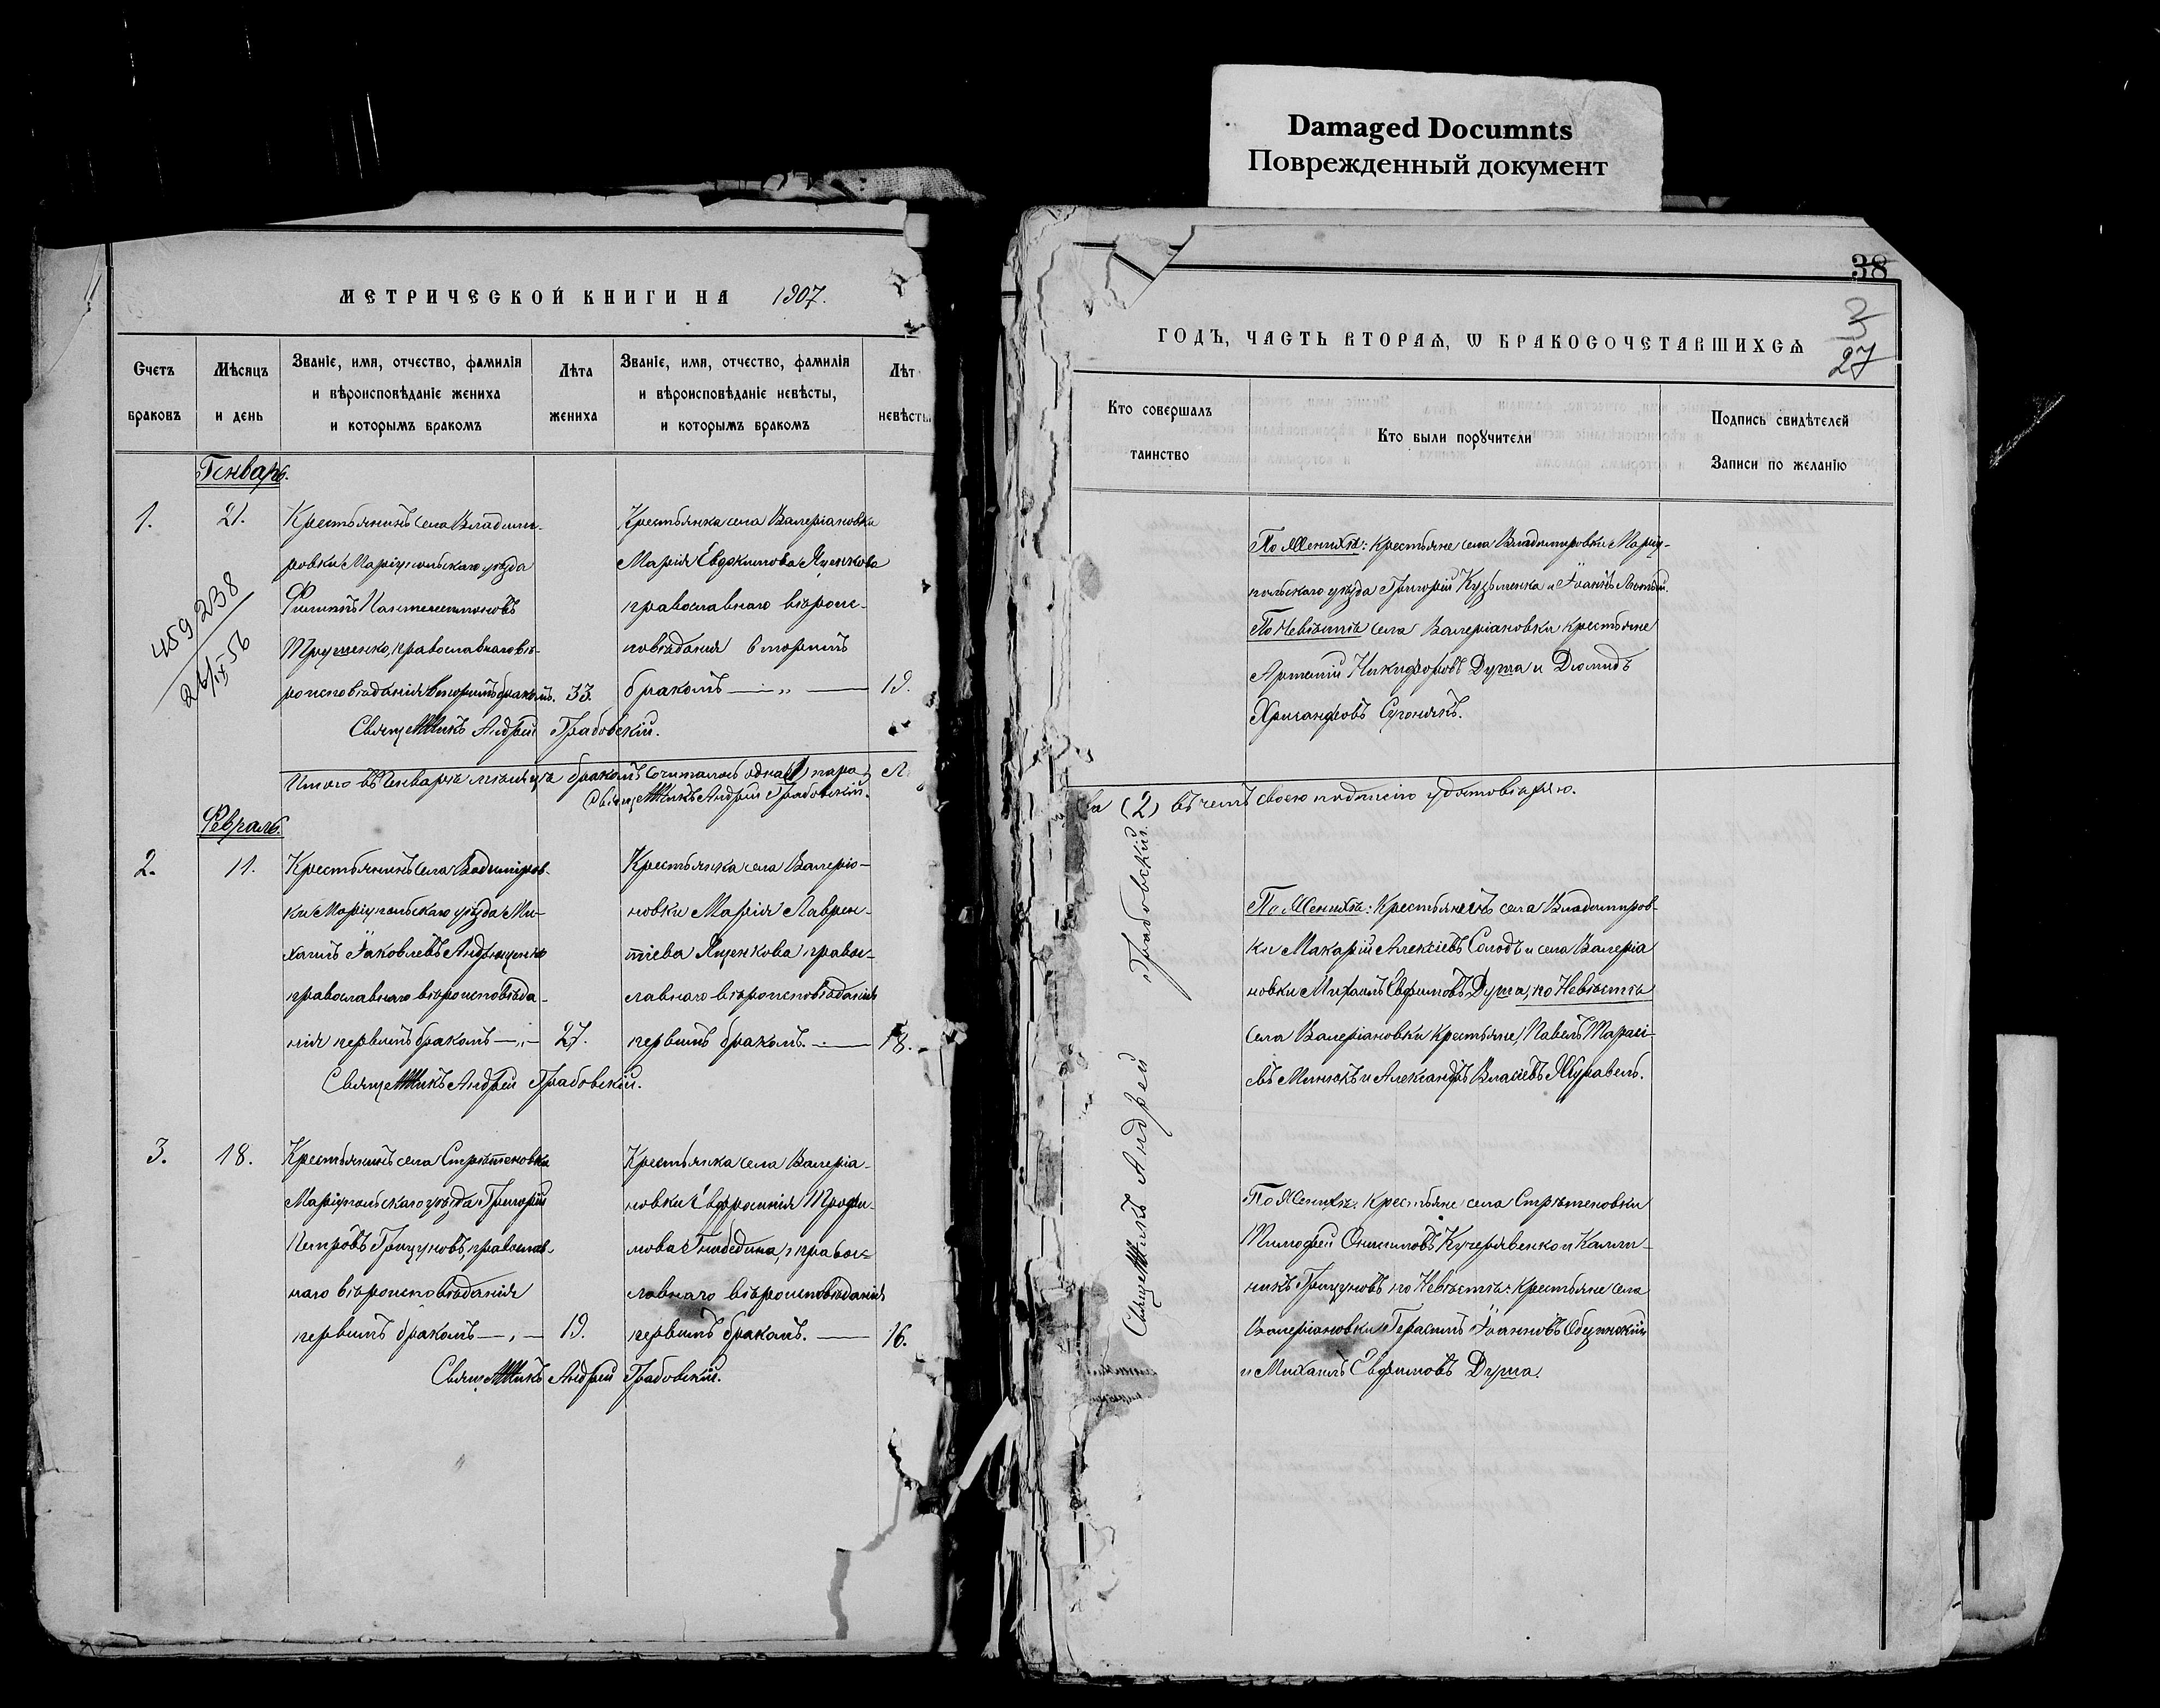 Damaged Documnts
Поврежденный документ
МЕТРИЧЕСКОЙ КНИГИ НА 1907.
Счетъ браковъ
Мѣсяцъ и день
Званіе, имя, отчество, фамилія и вѣроисповѣданіе жениха и которымъ бракомъ
Лѣта жениха
Званіе, имя, отчество, фамилія и вѣроисповѣданіе невѣсты, и которымъ бракомъ
Лѣт невѣсты
Генварь.
1.
21.
459238
21/IX 56
Крестьянинъ села Владими-
ровки Маріупольскаго уѣзда
Филиппъ Пантелеимоновъ
Трушенко, православнаго вѣ-
роисповѣданія вторымъ бракомъ.
33.
Крестьянка села Валеріановки
Марія Евдокимова Яценкова
православнаго вѣроис-
повѣданія вторымъ
бракомъ — „ —
19.
Священникъ Андрей Грабовскій.
Итого въ Генварѣ мѣсяцѣ бракомъ сочталась одна (1) пара, Л
Священникъ Андрей Грабовскій.
Февраль.
2.
11.
Крестьянинъ села Вадиміров-
ки Маріупольскаго уѣзда Ми-
хаилъ Іаковлевъ Андрющенко
православнаго вѣроисповѣда-
нія первымъ бракомъ — „ —
27.
Крестьянка села Валеріа-
новки Марія Лаврен-
тіева Яценкова, правос-
лавнаго вѣроисповѣданія
первымъ бракомъ. —
18.
Священникъ Андрей Грабовскій.
3.
18.
Крестьянинъ села Стрѣтеновки
Маріупольскаго уѣзда Григорій
Петровъ Грицуновъ, православ-
наго вѣроисповѣданія
первымъ бракомъ — „ —
19.
Крестьянка села Валеріа-
новки Евфросинія Трофи-
мова Гнибедина, правос-
лавнаго вѣроисповѣданія
первымъ бракомъ. —
16.
Священникъ Андрей Грабовскій.
38
3
27
ГОДЪ, ЧАСТЬ ВТОРАЯ, Ѡ БРАКОСОЧЕТАВШИХСЯ
Кто совершалъ таинство
Кто были порꙋчители
Подпись свидѣтелей Записи по желанію
По Женихѣ: крестьяне села Владимировки Маріу-
польскаго уѣзда Григорій Кузьменка и Іоаннъ Лютый.
По Невѣстѣ села Валеріановки крестьяне
Артемій Никифоровъ Дуппа и Діомидъ
Хрисанфовъ Супонякъ.
ца (2) въ чемъ своею подписью удостовѣряю.
Священникъ Андрей Грабовскій.
По Женихѣ: Крестьяненъ села Владимиров-
ки Макарій Алексіевъ Солодъ и села Валеріа
новки Михаилъ Евфимовъ Дуппа, по Невѣстѣ
села Валеріановки крестьяне, Павелъ Тарасі-
евъ Минюкъ и Александръ Власіевъ Журавель.
По Женихѣ: крестьяне села Стрѣтеновки
Тимофей Онисимовъ Кучерявенко и Калли-
никъ Грицуновъ по Невѣстѣ: крестьяне села
Валеріановки Герасимъ Іоанновъ Обушскій
и Михаилъ Евфимовъ Дуппа.